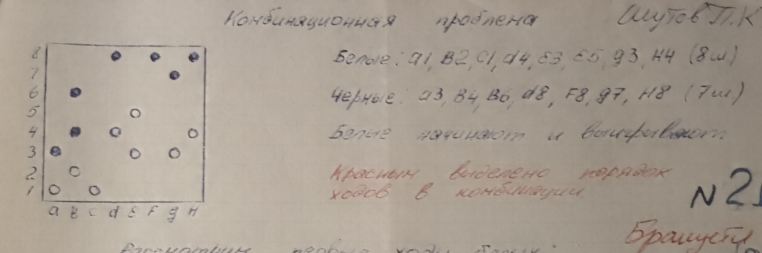 Комбинационная проблема Шутов П.К
Белые: a1, B2, C1, d4, E3, E5, g3, H4 (8ш)
Черные: a3, B4, B6, d8, F8, g7, H8 (7ш)
Белые начинают и выигрывают
Красным выделено порядок
ходов в комбинации
N 2
8
7
6
5
4
3
2
1
a B C d E F g H
Рассмотрим первые ходы белых: